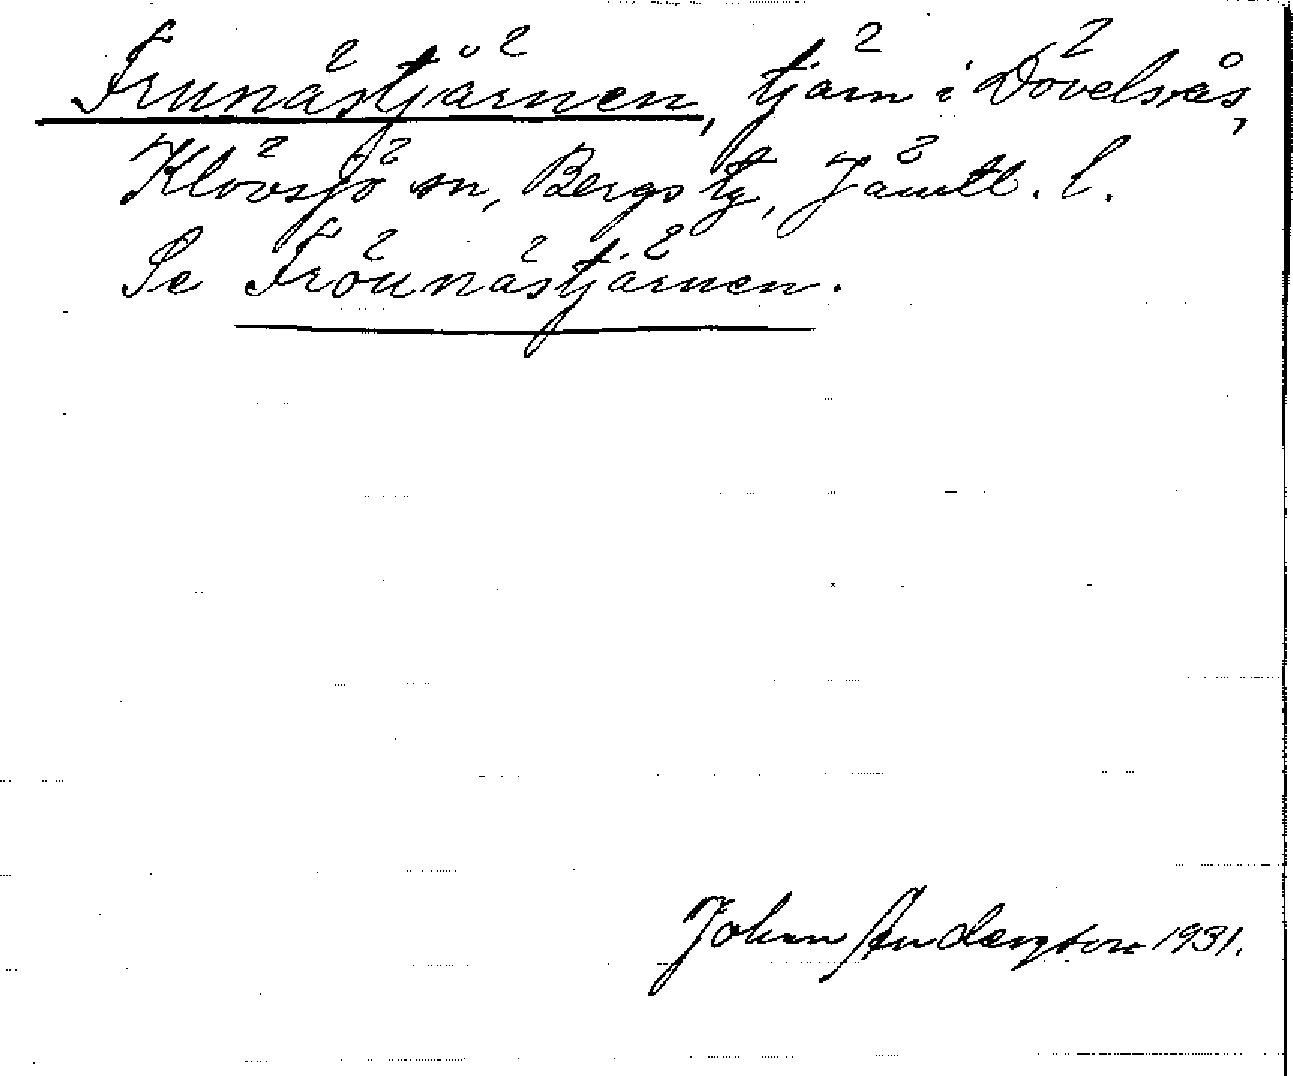 Frunästjärnen, tjärn i Dövelsås,
Klövsjö sn, Bergs tg, Jämtl. l.
Se Fröunästjärnen.
Johan Andersson 1931.